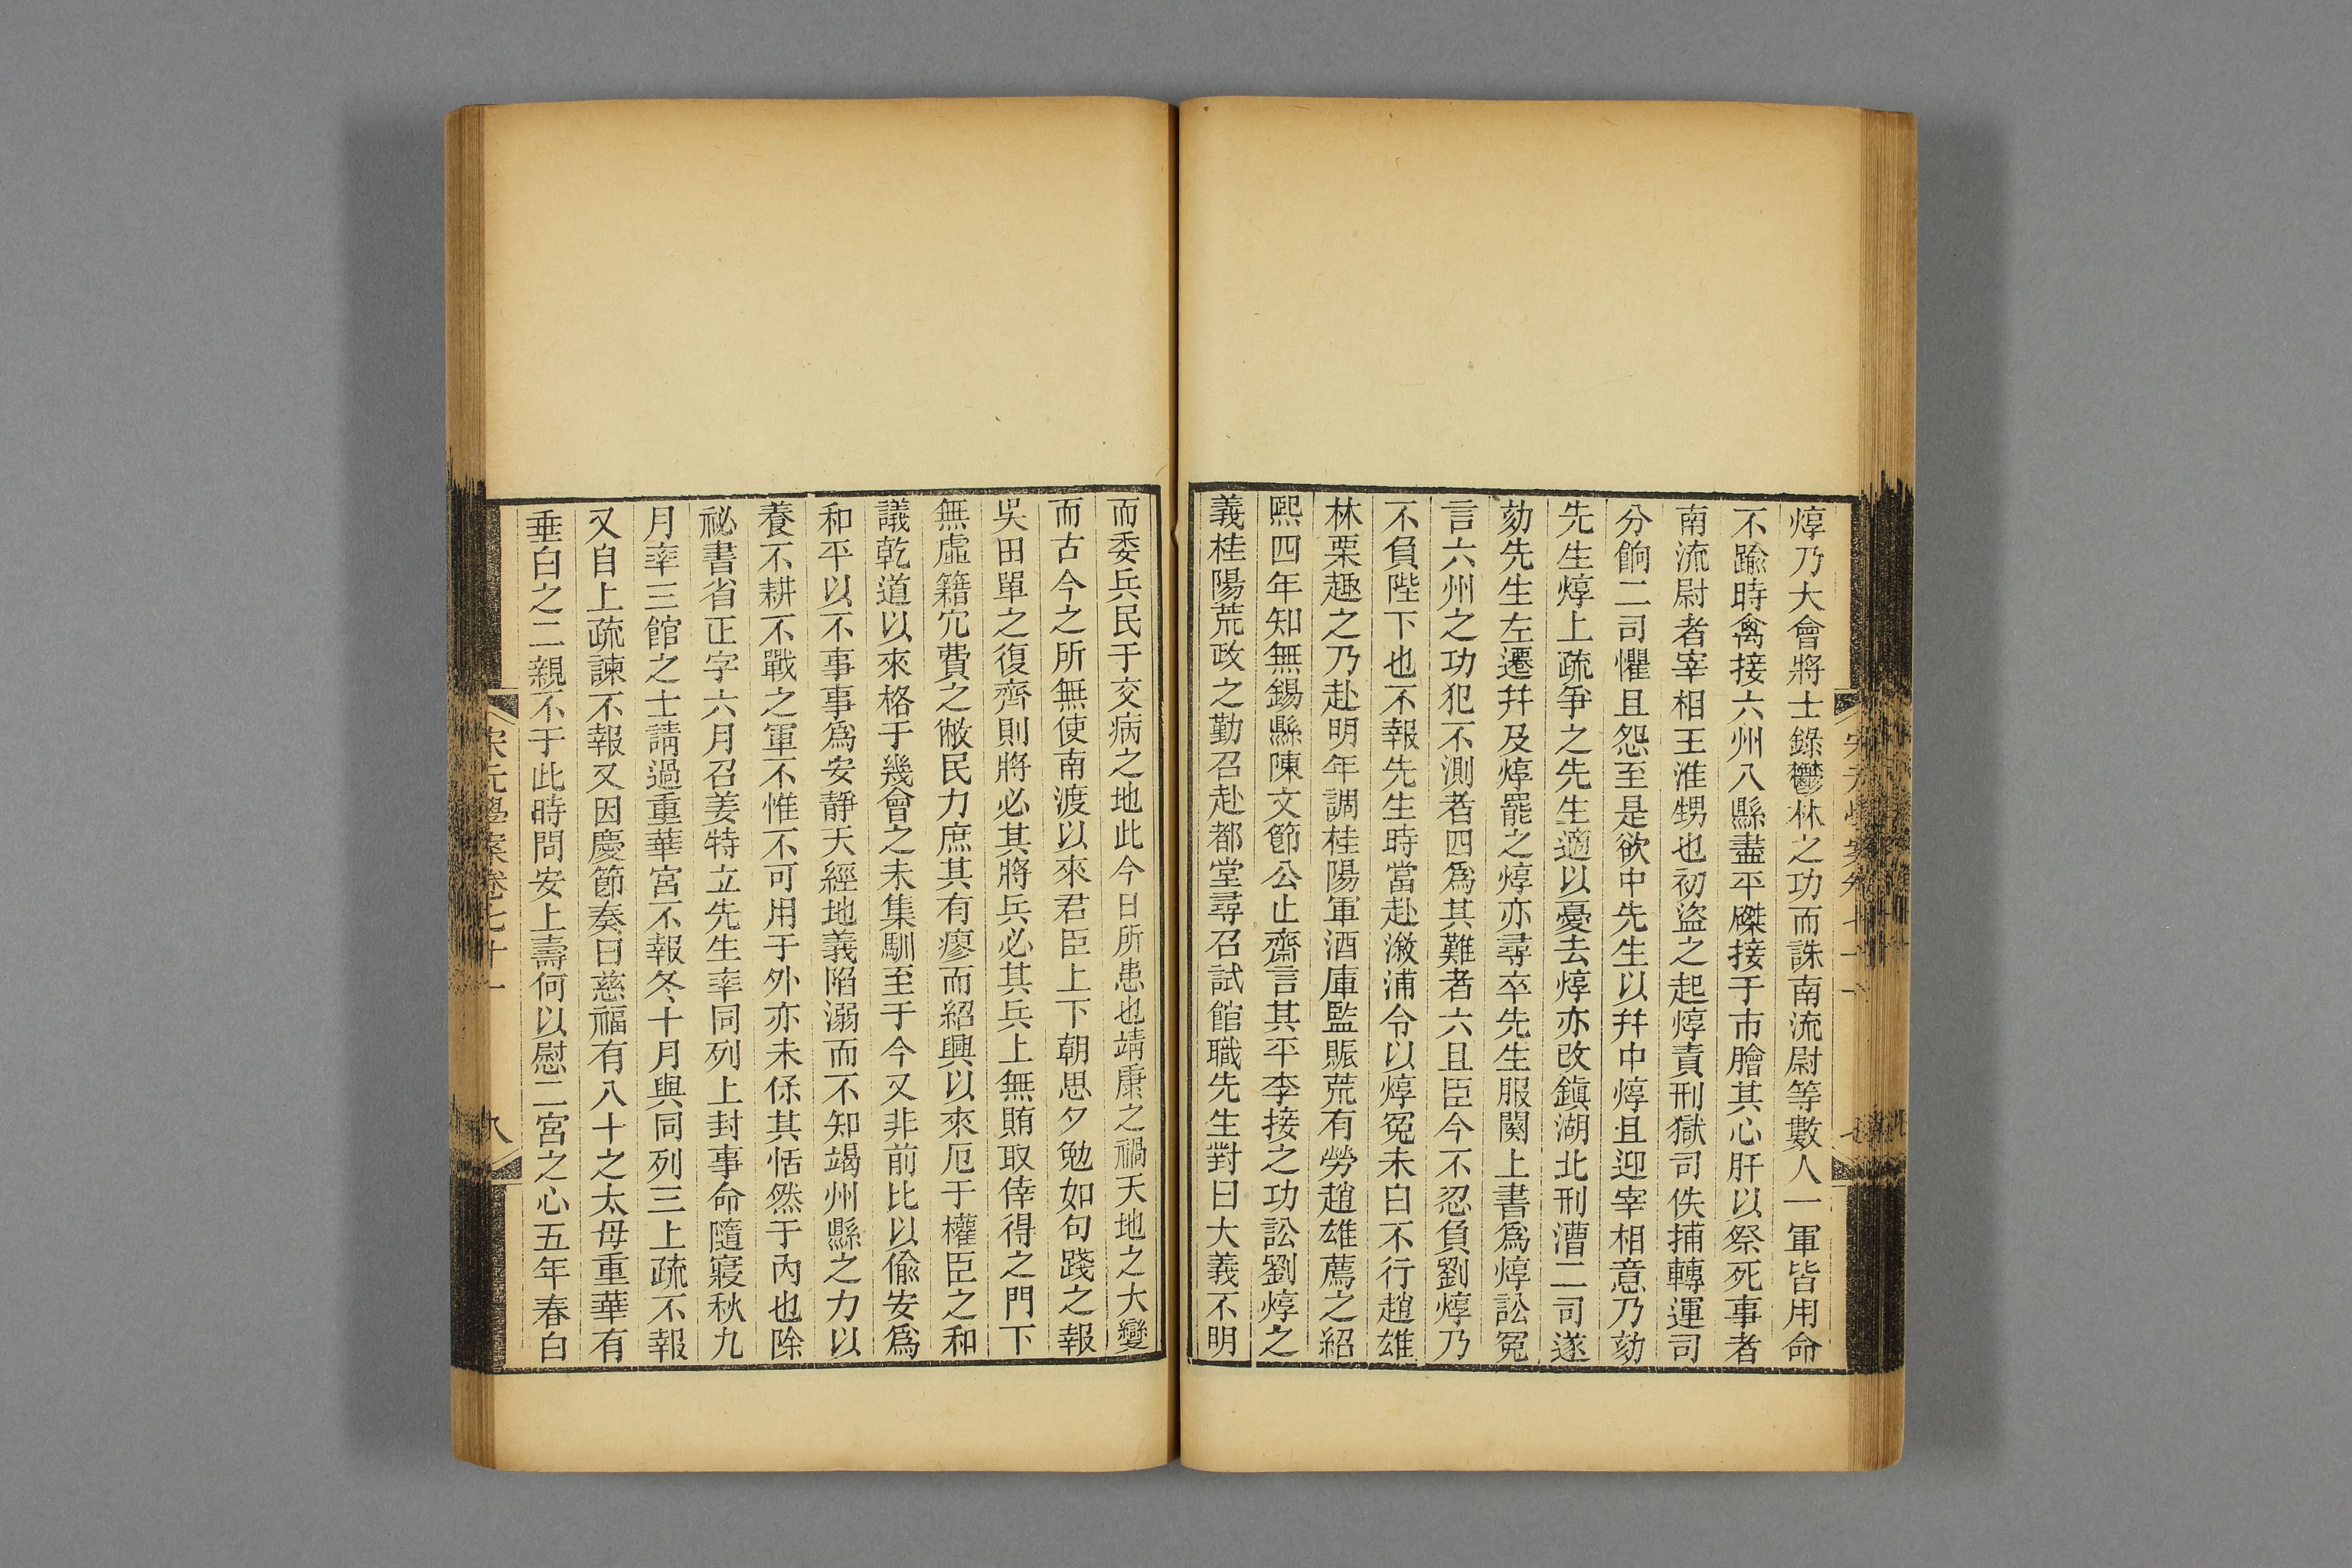 焞乃大會將士錄鬱林之功而誅南流尉等數人一軍皆用命
不踰時禽接六州八縣盡平磔接于市膾其心肝以祭死事者
南流尉者宰相王淮甥也初盜之起焞責刑獄司佚捕轉運司
分餉二司懼且怨至是欲中先生以幷中焞且迎宰相意乃劾
先生焞上疏爭之先生適以憂去焞亦改鎭湖北刑漕二司遂
劾先生左遷幷及焞罷之焞亦尋卒先生服闋上書爲焞訟冤
言六州之功犯不測者四爲其難者六且臣今不忍負劉焞乃
不負陛下也不報先生時當赴漵浦令以焞冤未白不行趙雄
林栗趣之乃赴明年調桂陽軍酒庫監賑荒有勞趙雄薦之紹
熙四年知無錫縣陳文節公止齋言其平李接之功訟劉焞之
義桂陽荒政之勤召赴都堂尋召試館職先生對曰大義不明
而委兵民于交病之地此今日所患也靖康之禍天地之大變
而古今之所無使南渡以來君臣上下朝思夕勉如句踐之報
吳田單之復齊則將必其將兵必其兵上無賄取倖得之門下
無虛籍冗費之敝民力庶其有瘳而紹興以來厄于權臣之和
議乾道以來格于幾會之未集馴至于今又非前比以偷安爲
和平以不事事爲安靜天經地義陷溺而不知竭州縣之力以
養不耕不戰之軍不惟不可用于外亦未保其恬然于內也除
祕書省正字六月召姜特立先生率同列上封事命隨寢秋九
月率三館之士請過重華宮不報冬十月與同列三上疏不報
又自上疏諫不報又因慶節奏曰慈福有八十之太母重華有
垂白之二親不于此時問安上壽何以慰二宮之心五年春白
宋元學案卷七十一
八